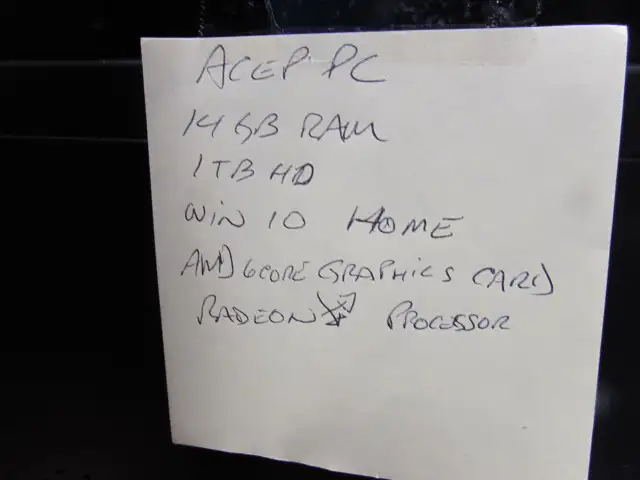 ACER PC
14 GB RAM
1 TB HD
WIN 10 HOME
AMD 6 CORE GRAPHICS CARD
RADEON PROCESSOR